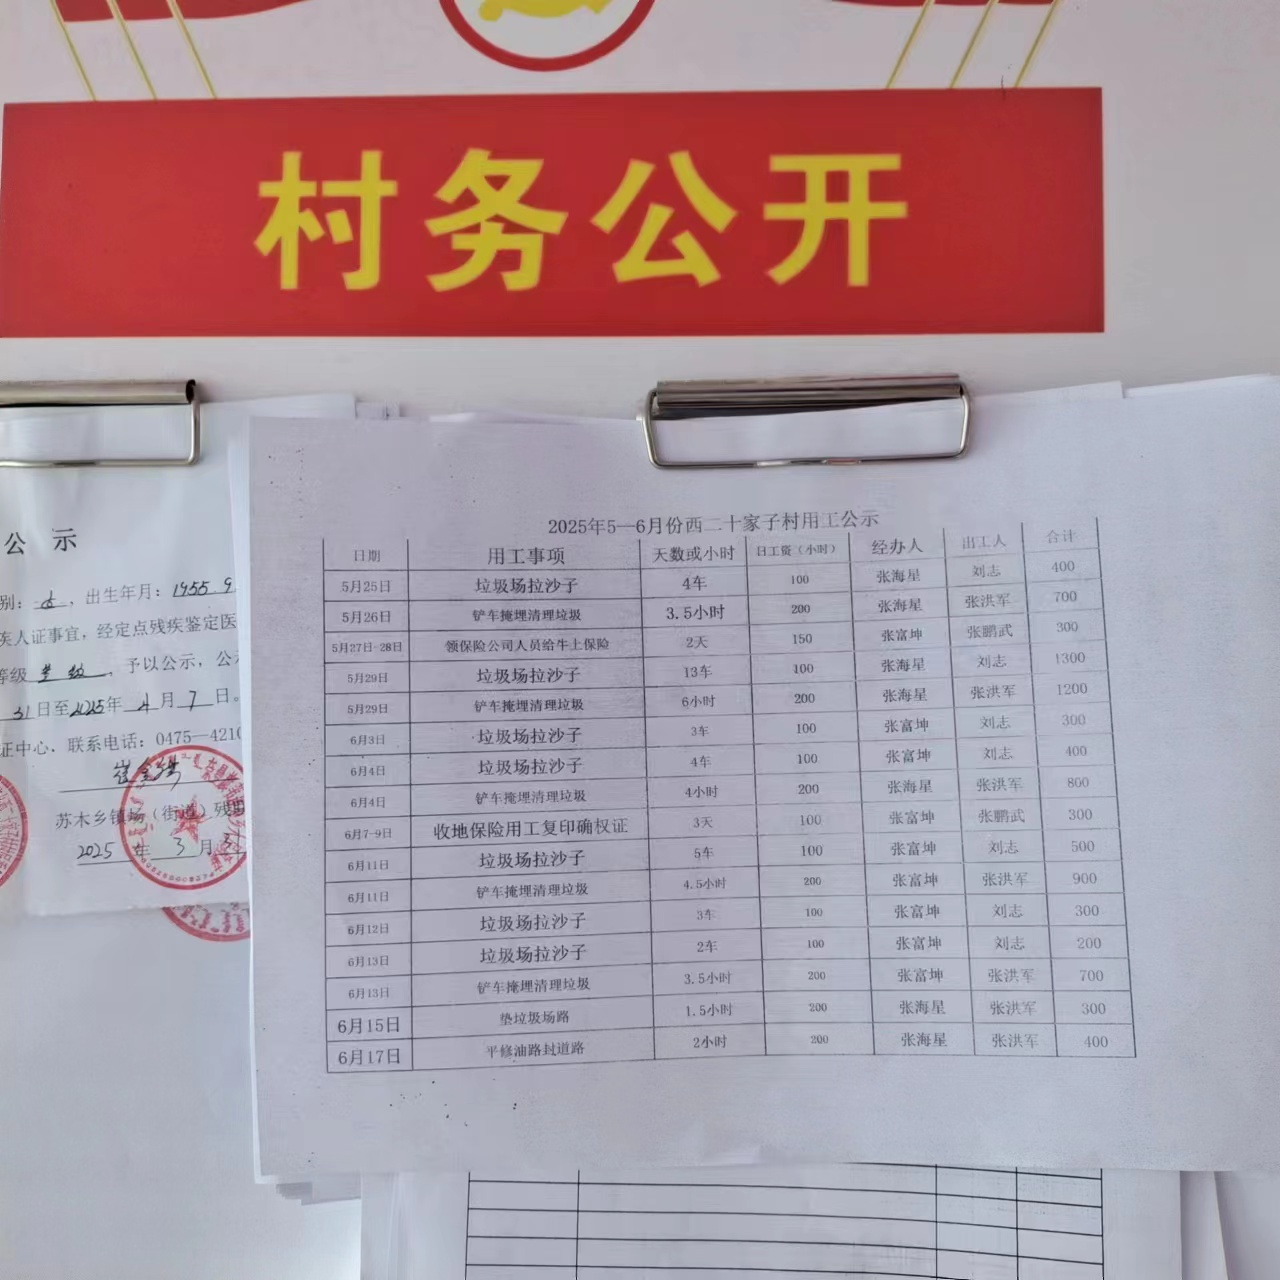 村务公开
公 示
别: , 出生年月: 1955.9.
疾人证事宜, 经定点残疾鉴定医
等级 , 予以公示, 公
31日至2025年 4 月 7 日。
证中心, 联系电话: 0475—4210
苏木乡镇场（街道）残联
2025 年 3 月 31
2025年5—6月份西二十家子村用工公示
日期 用工事项 天数或小时 日工资（小时） 经办人 出工人 合计
5月25日 垃圾场拉沙子 4车 100 张海星 刘志 400
5月26日 铲车掩埋清理垃圾 3.5小时 200 张海星 张洪军 700
5月27日-28日 领保险公司人员给牛上保险 2天 150 张富坤 张鹏武 300
5月29日 垃圾场拉沙子 13车 100 张海星 刘志 1300
5月29日 铲车掩埋清理垃圾 6小时 200 张海星 张洪军 1200
6月3日 垃圾场拉沙子 3车 100 张富坤 刘志 300
6月4日 垃圾场拉沙子 4车 100 张富坤 刘志 400
6月4日 铲车掩埋清理垃圾 4小时 200 张海星 张洪军 800
6月7-9日 收地保险用工复印确权证 3天 100 张富坤 张鹏武 300
6月11日 垃圾场拉沙子 5车 100 张富坤 刘志 500
6月11日 铲车掩埋清理垃圾 4.5小时 200 张富坤 张洪军 900
6月12日 垃圾场拉沙子 3车 100 张富坤 刘志 300
6月13日 垃圾场拉沙子 2车 100 张富坤 刘志 200
6月13日 铲车掩埋清理垃圾 3.5小时 200 张富坤 张洪军 700
6月15日 垫垃圾场路 1.5小时 200 张海星 张洪军 300
6月17日 平修油路封道路 2小时 200 张海星 张洪军 400